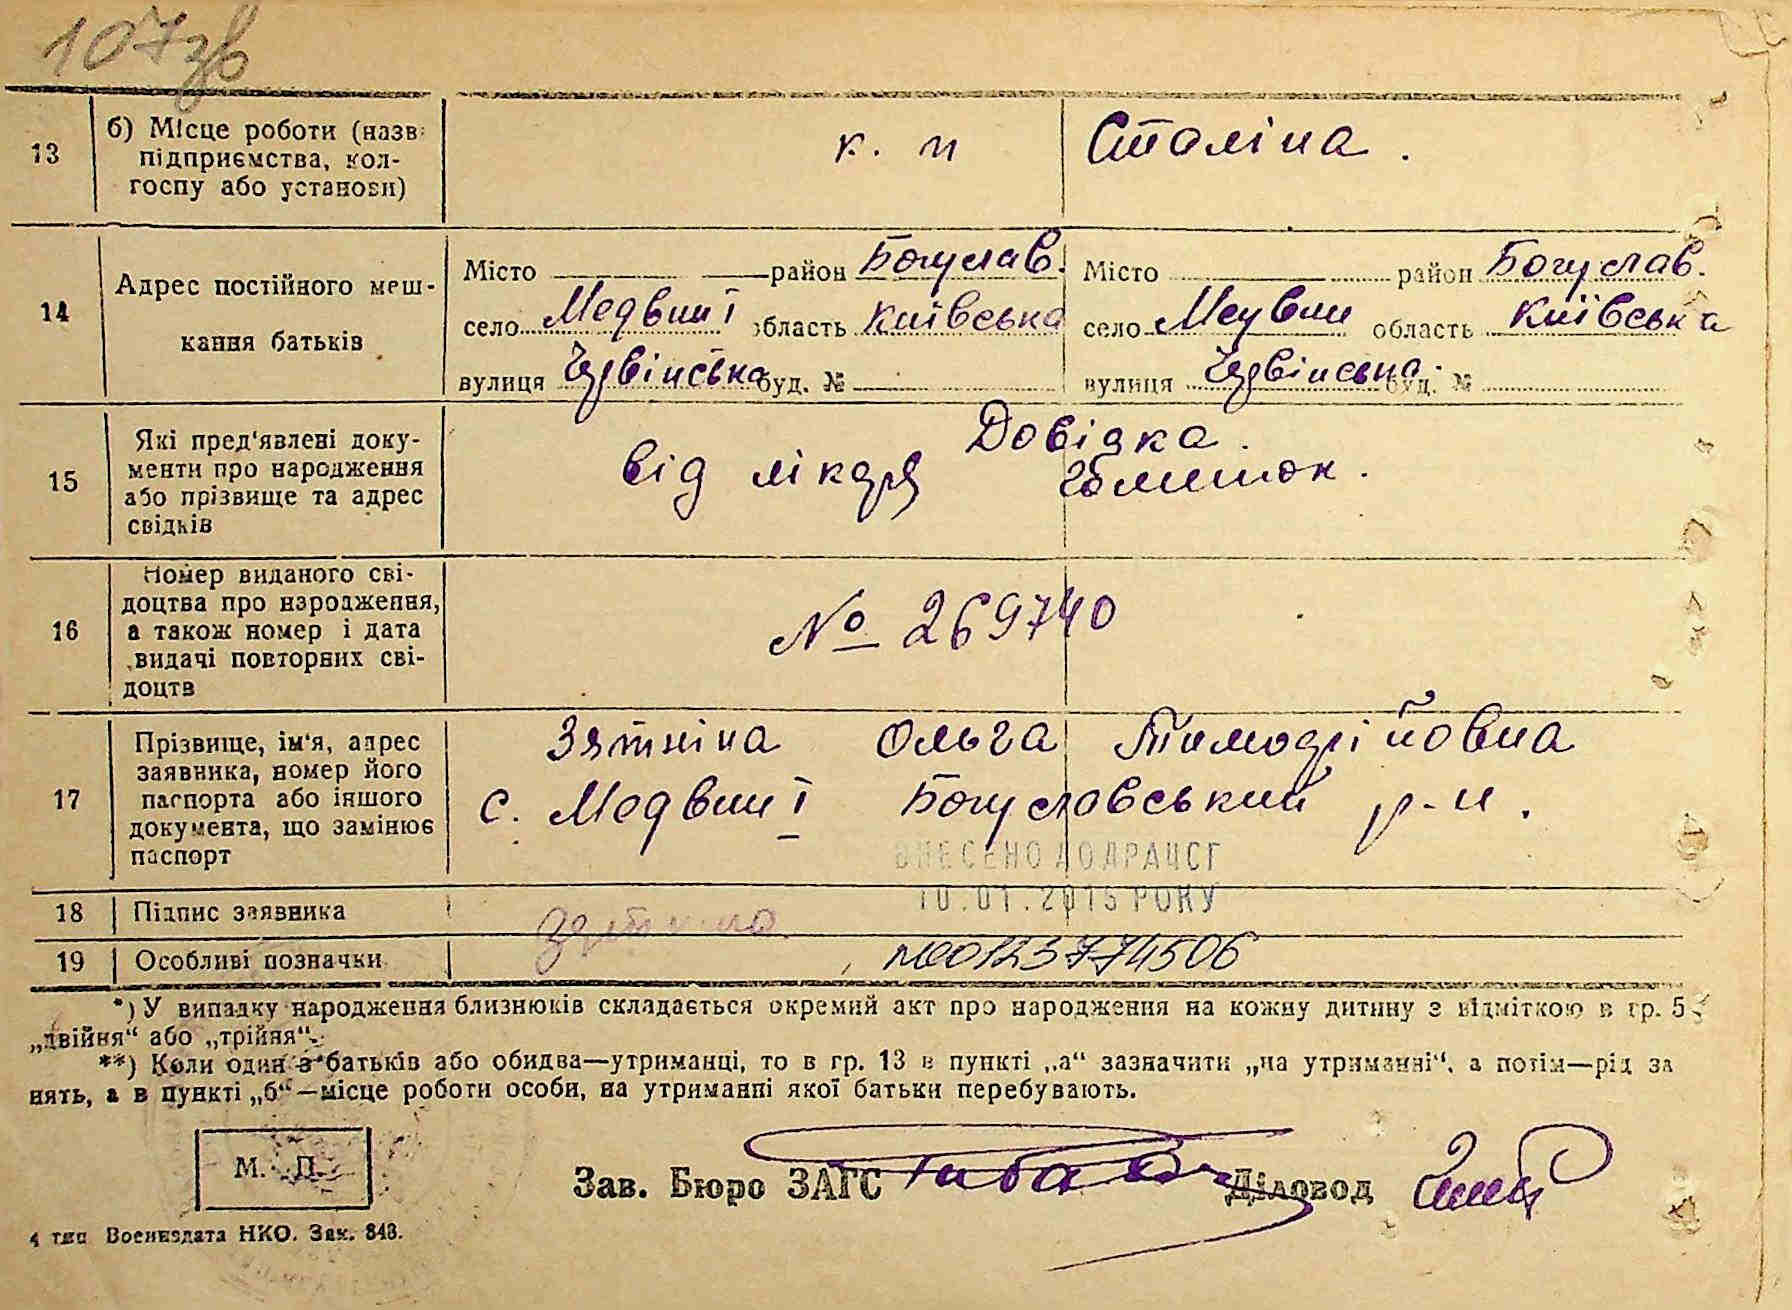 107зв
13 б) Місце роботи (назв підприємства, кол-
госпу або установи)
к. п Сталіна.
14 Адрес постійного меш-
кання батьків
Місто район Богуслав. Місто район Богуслав.
село Медвині область Київська село Медвин область Київська
вулиця буд. № вулиця буд. №
15 Які пред'явлені доку-
менти про народження
або прізвище та адрес
свідків
Довідка.
від лікаря
16 Номер виданого сві-
доцтва про народження,
а також номер і дата
видачі повторних сві-
доцтв
№ 269740
17 Прізвище, ім'я, адрес
заявника, номер його
паспорта або іншого
документа, що замінює
паспорт
Зятніна Ольга
с. Медвині Богуславський р-н.
ВНЕСЕНО ДО ДРАЦСГ
10.01.2015 РОКУ
18 Підпис заявника
19 Особливі позначки
№00123774506
*) У випадку народження близнюків складається окремий акт про народження на кожну дитину з відміткою в гр. 5
„двійня“ або „трійня“.
**) Коли один з батьків або обидва—утриманці, то в гр. 13 в пункті „а“ зазначити „на утриманні“, а потім—рід за
нять, а в пункті „б“—місце роботи особи, на утриманні якої батьки перебувають.
М. П.
Зав. Бюро ЗАГС Діловод
4 тип Воениздата НКО. Зак. 843.